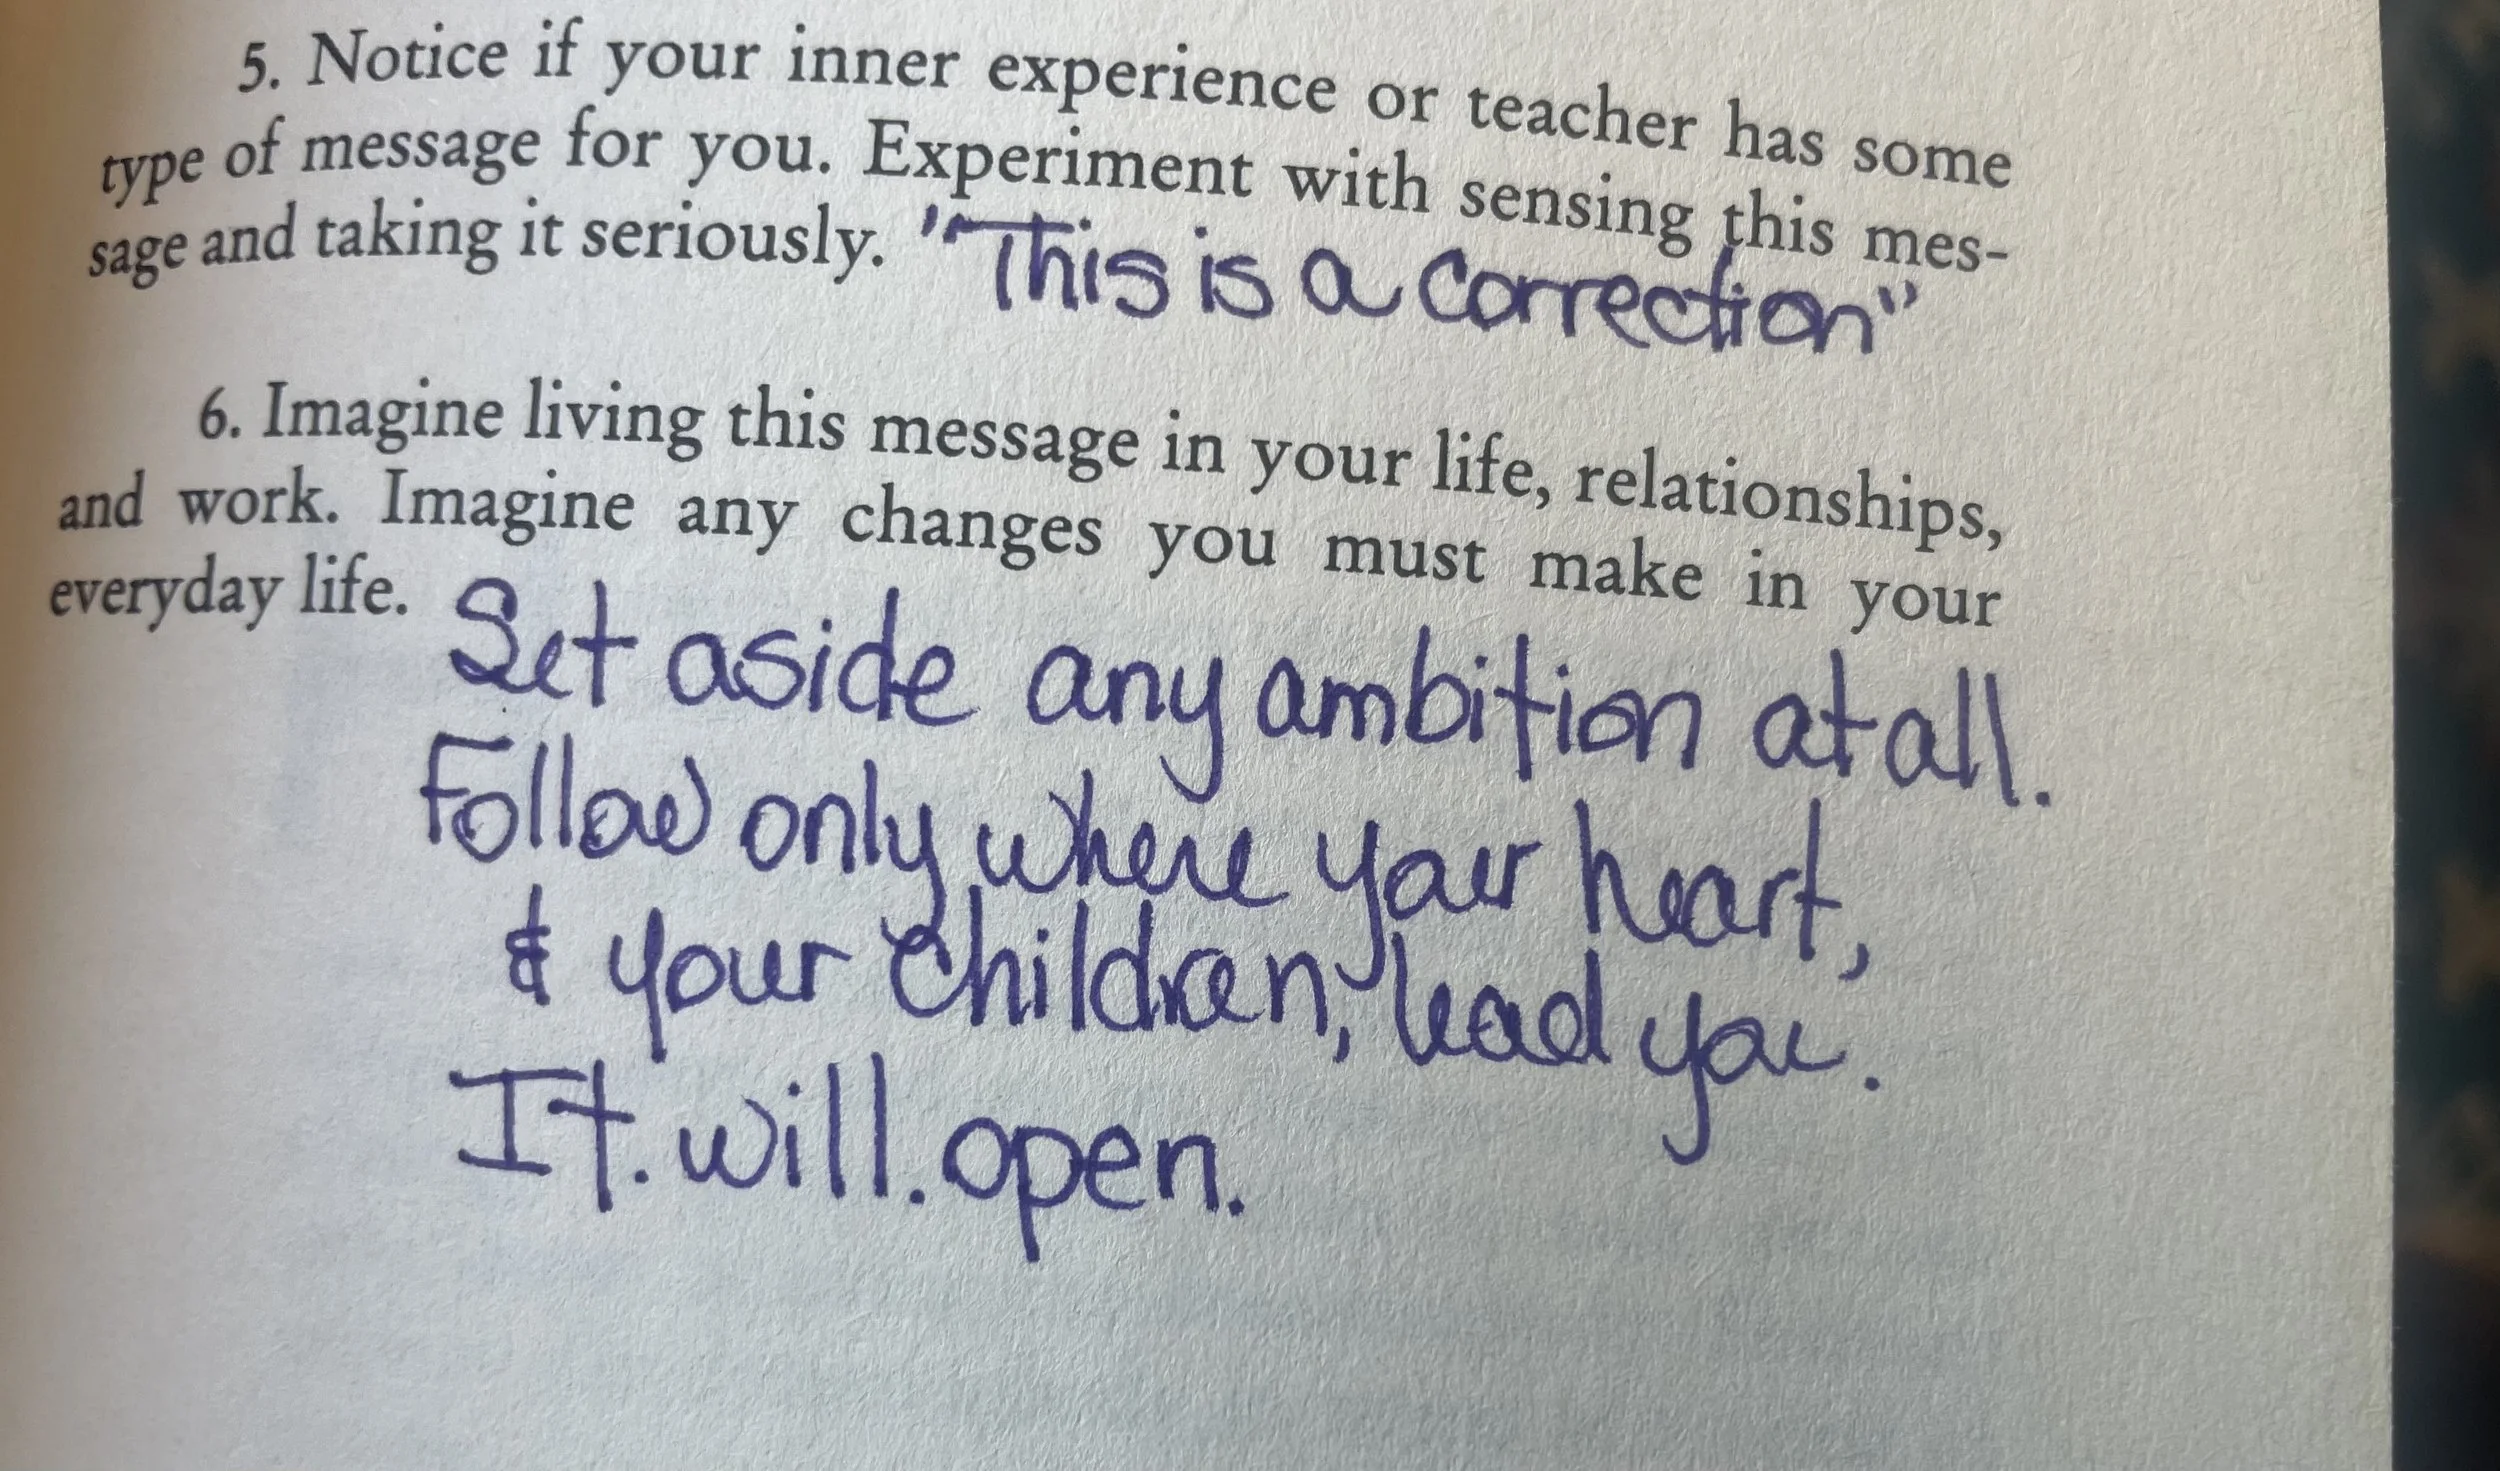 5. Notice if your inner experience or teacher has some
type of message for you. Experiment with sensing this mes-
sage and taking it seriously. "This is a correction"
6. Imagine living this message in your life, relationships,
and work. Imagine any changes you must make in your
everyday life. Set aside any ambition at all.
Follow only where your heart,
& your children, lead you.
It. will. open.